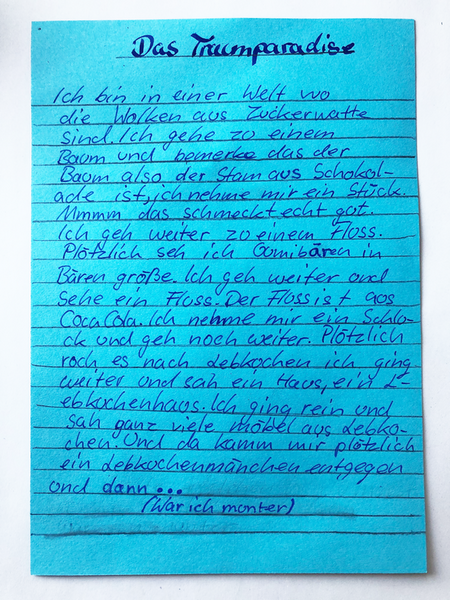 Das Traumparadise
Ich bin in einer Welt wo
die Wolken aus Zuckerwatte
sind. Ich gehe zu einem
Baum und bemerke das der
Baum also der Stam aus Schokol-
ade ist, ich nehme mir ein Stück.
Mmmm das schmeckt echt gut.
Ich geh weiter zu einem Fluss.
Plötzlich seh ich Gumibären in
Bären größe. Ich geh weiter und
sehe ein Fluss. Der Fluss ist aus
Coca Cola. Ich nehme mir ein Schlu-
ck und geh noch weiter. Plötzlich
roch es nach Lebkuchen ich ging
weiter und sah ein Haus, ein L-
ebkuchenhaus. Ich ging rein und
sah ganz viele möbel aus Lebku-
chen. Und da kamm mir plötzlich
ein Lebkuchenmänchen entgegen
und dann...
(War ich munter)